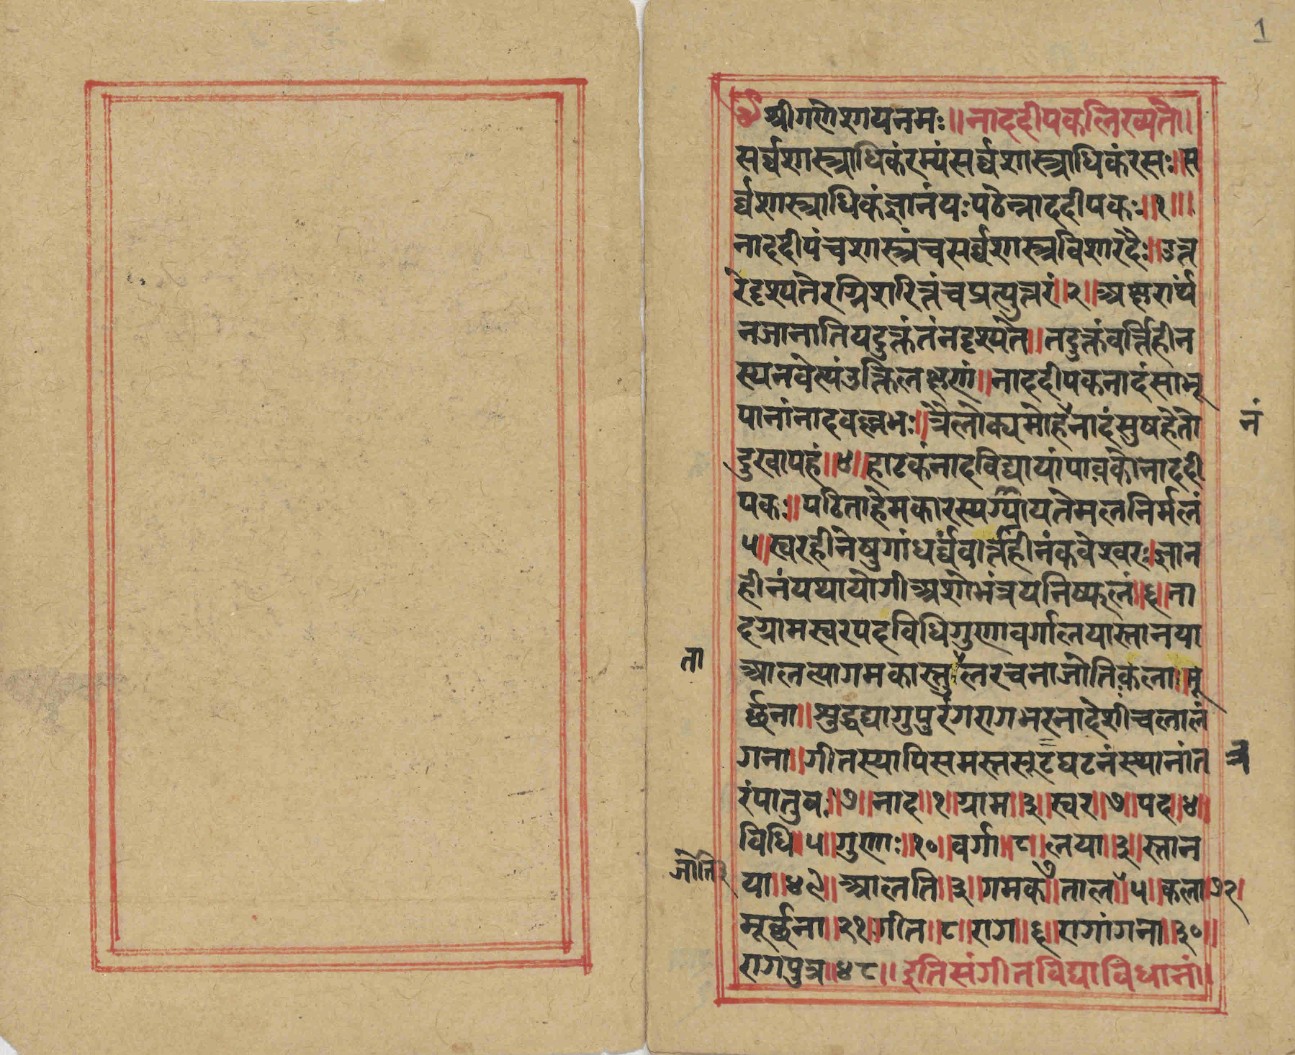 1
श्रीगणेशायनमः॥नाददीपकलिख्यते॥
सर्व्वशास्त्राधिकंरम्यंसर्व्वशास्त्राधिकंरसः॥स
र्व्वशास्त्राधिकंज्ञानंयःपठेन्नाददीपकः॥१॥
नाददीपंचशास्त्रंचसर्व्वशास्त्रविशारदैः॥उत्त
नजानातियदुक्तंतंनदृश्यते॥तदुक्तंवर्त्तिहीन
नाददीपकनादंसाभू
पानांनादवल्लभः॥त्रैलोक्यमोहेनादंसुषहेतो
नं
दुखापहं॥४॥हाटकंनादविद्यायांपावकोनाददी
पकः॥पठिताहेमकारस्यग्यायतेमलनिर्मलं
५॥स्वरहीनेषुगांधर्व्वंवार्त्तहीनंकवेस्वरः॥ज्ञान
हीनंयथायोगीअशोभंत्रयनिष्फलं॥६॥ना
दग्रामस्वरपदविधिगुणावर्गालयास्तानया
ता
रचनाजोतिकला॥मू
र्छना॥शुद्धद्यागुपुरंगरागभरनादेशीचलालं
गना॥गीतस्यापिसमस्तसूटघटनंस्थानांत
त्र
रंपातुवः॥७॥नाद॥१॥ग्राम॥३॥स्वर॥७॥पद॥४॥
विधि॥५॥गुणः॥१०॥वर्गा॥८॥लया॥३॥स्तान
जोति२
या॥४९॥आलति॥३॥गमक॥७॥ताल॥५॥कला७२॥
मूर्छना॥२१॥गीत॥८॥राग॥६॥रागांगना॥३०॥
रागपुत्र॥४८॥इतिसंगीतविद्याविधानां॥